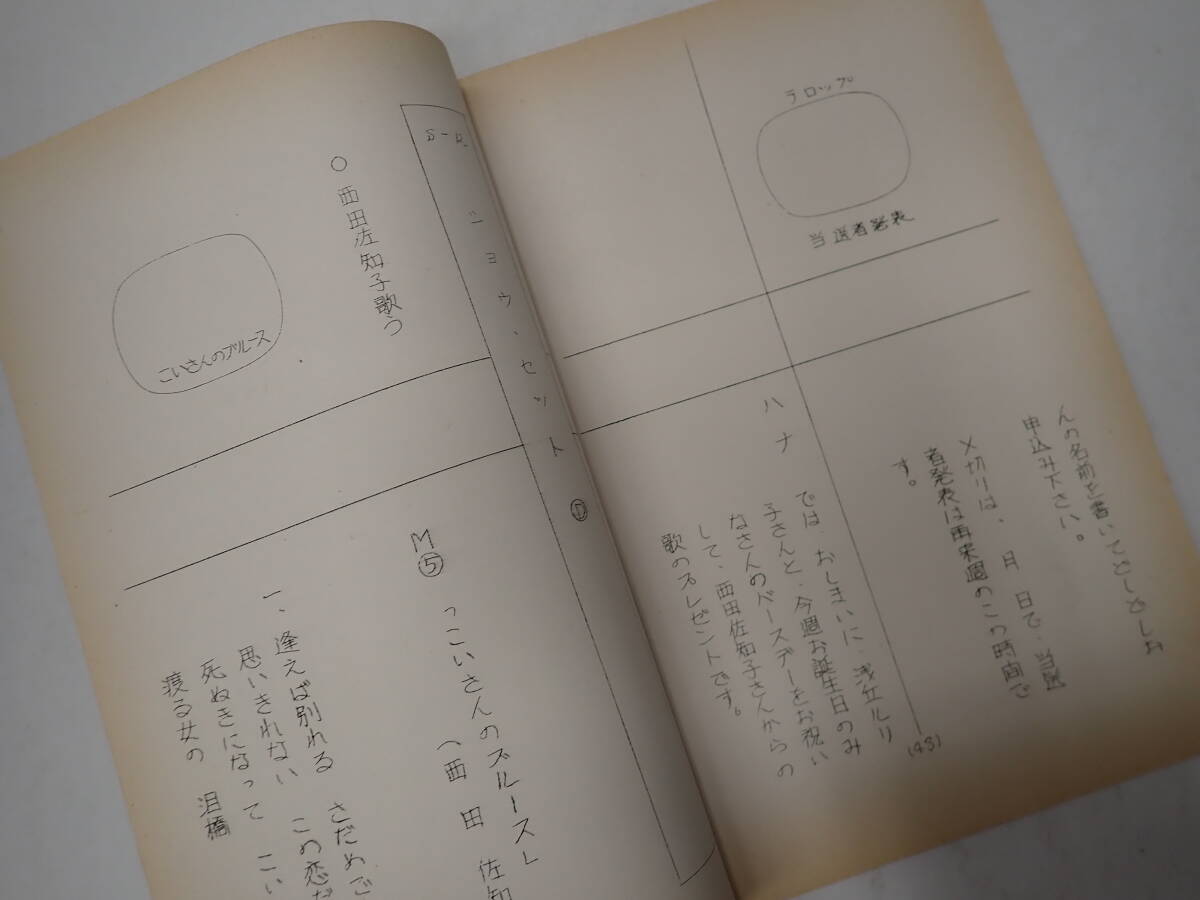 テロップ
当選者発表
んの名前を書いてどしどしお
申込み下さい。
〆切りは、 月 日で、当選
者発表は再来週のこの時間で
す。
ハナ
では、おしまいに、浅丘ルリ
子さんと、今週お誕生日のみ
なさんのバースデーをお祝い
して、西田佐知子さんからの
歌のプレゼントです。
(43)
ニヨウ・セット
○ 西田佐知子歌う
こいさんのブルース
M⑤ 「こいさんのブルース」
(西田 佐知
一、逢えば別れる さだめご
思いきれない この恋だ
死ぬきになって こい
渡る女の 泪橋